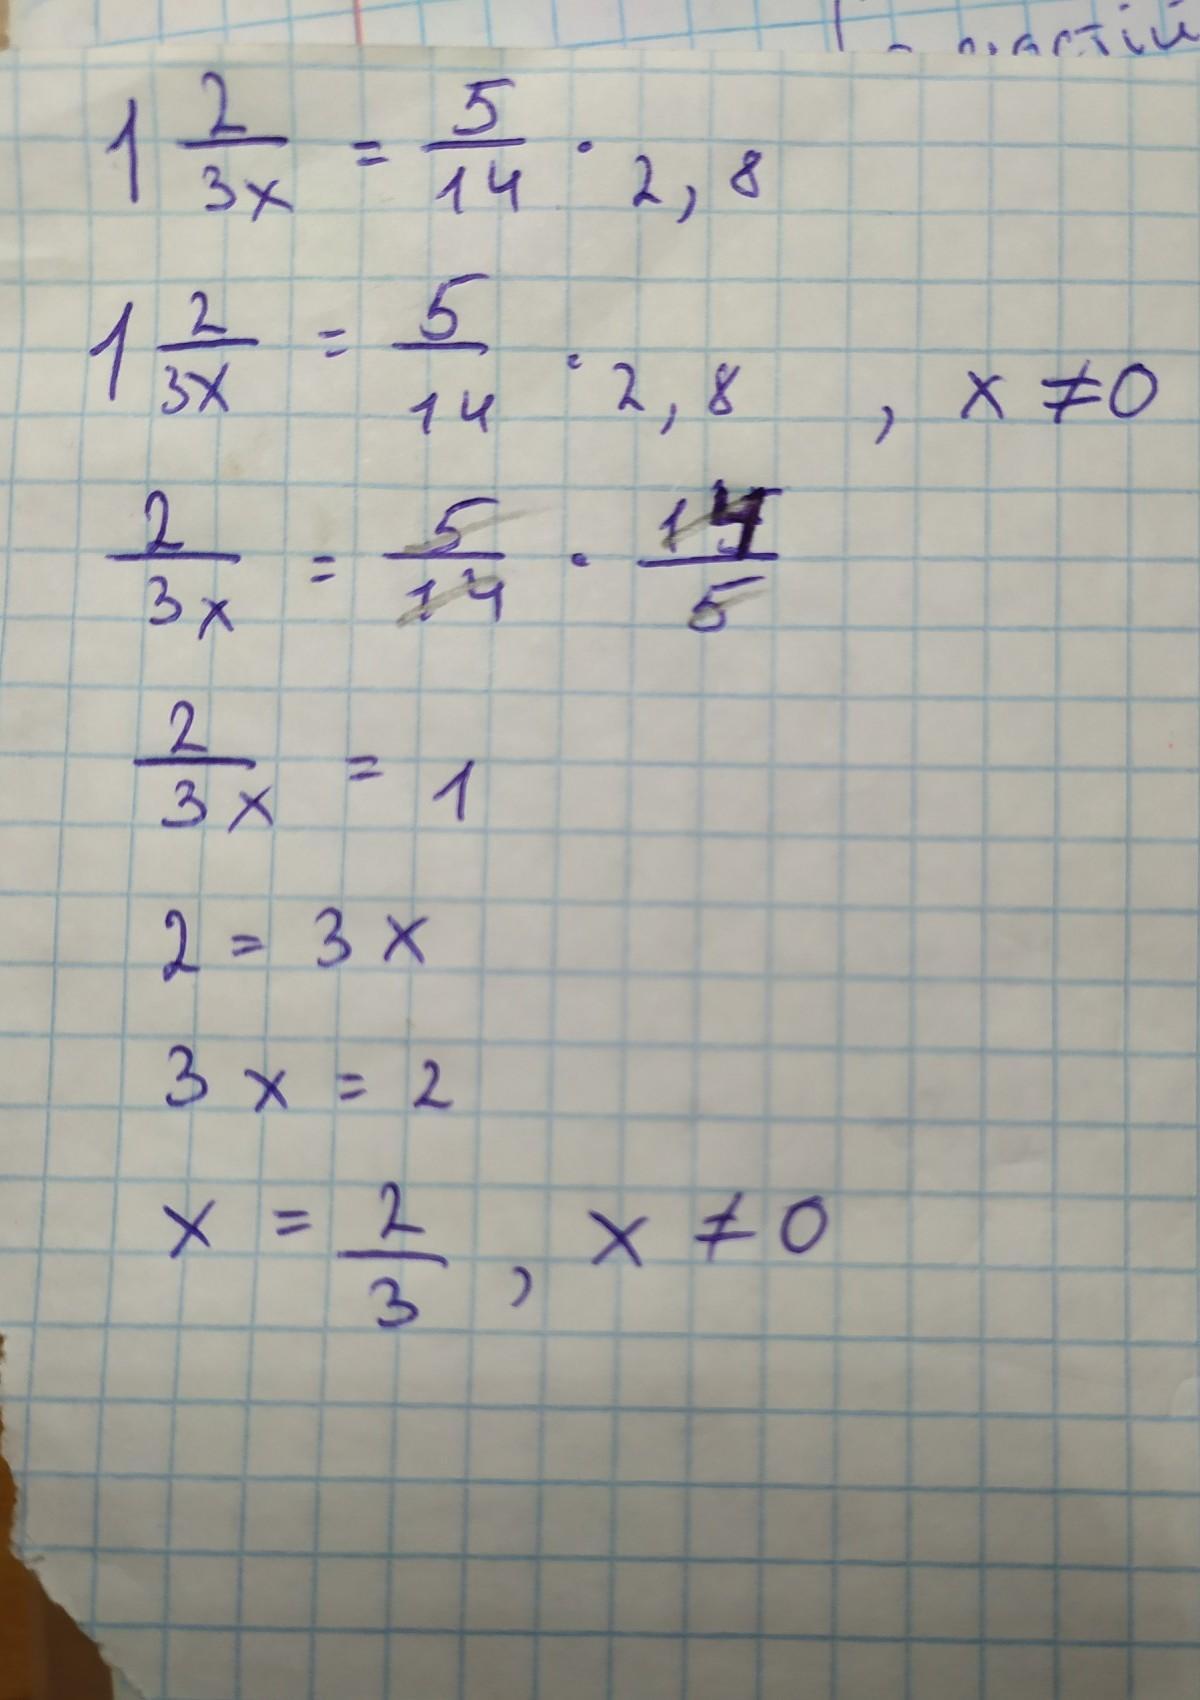 1 2/3x = 5/14 · 2,8
1 2/3x = 5/14 · 2,8 , x ≠ 0
2/3x = 5/14 · 14/5
2/3x = 1
2 = 3x
3x = 2
x = 2/3 , x ≠ 0